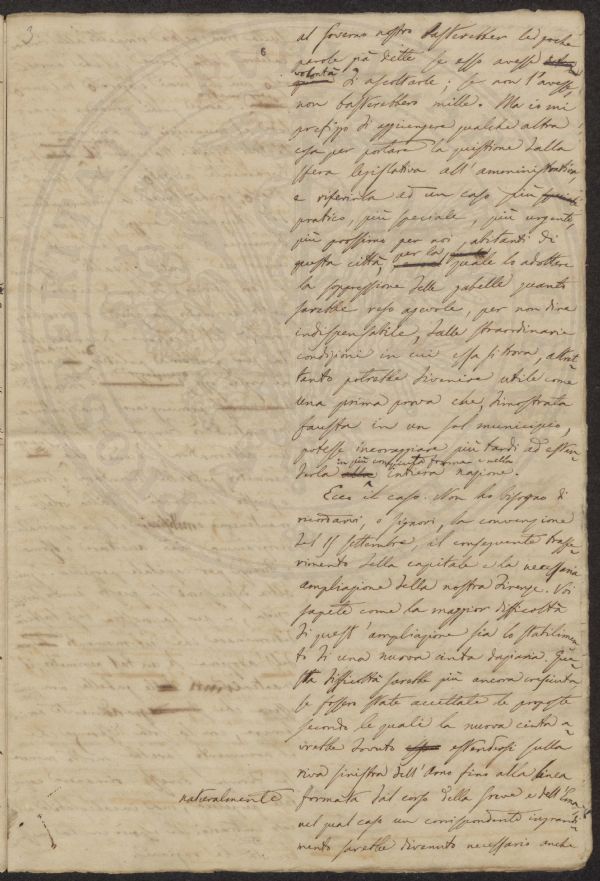 3
6
al Governo nostro basterebber le poche
parole già dette se esso avesse
volontà
di ascoltarle; e non l'avesse,
non basterebbero mille. Ma io mi
prefiggo di aggiungere qualche altra
cosa per portare la quistione dalla
sfera legislativa all'amministrativa
e riferirla ad un caso più
pratico, più speciale, più urgente,
più prossimo per noi abitanti di
questa città, per la quale lo adottare
la soppressione delle gabelle quanto
sarebbe reso agevole, per non dire
indispensabile, dalle straordinarie
condizioni in cui essa si trova, altret
tanto potrebbe divenire utile come
una prima prova che, dimostrata
fausta in un sol municipio,
potesse incoraggiare più tardi ad esten-
in più forma nella
derla intiera nazione.
Ecco il caso. Non ho bisogno di
ricordarvi, o Signori, la convenzione
del 15 settembre, il conseguente trasfe-
rimento della capitale e la necessaria
ampliazione della nostra Firenze. Voi
sapete come la maggior difficoltà
di quest'ampliazione sia lo stabilimen-
to di una nuova cinta daziaria. Que-
sta difficoltà sarebbe più ancora cresciuta
se fossero state accettate le proposte
secondo le quali la nuova cinta a-
vrebbe dovuto estendersi sulla
riva sinistra dell'Arno fino alla linea
naturalmente
formata dal corso della Greve e dell'Ema,
nel qual caso un corrispondente ingrandi-
mento sarebbe divenuto necessario anche